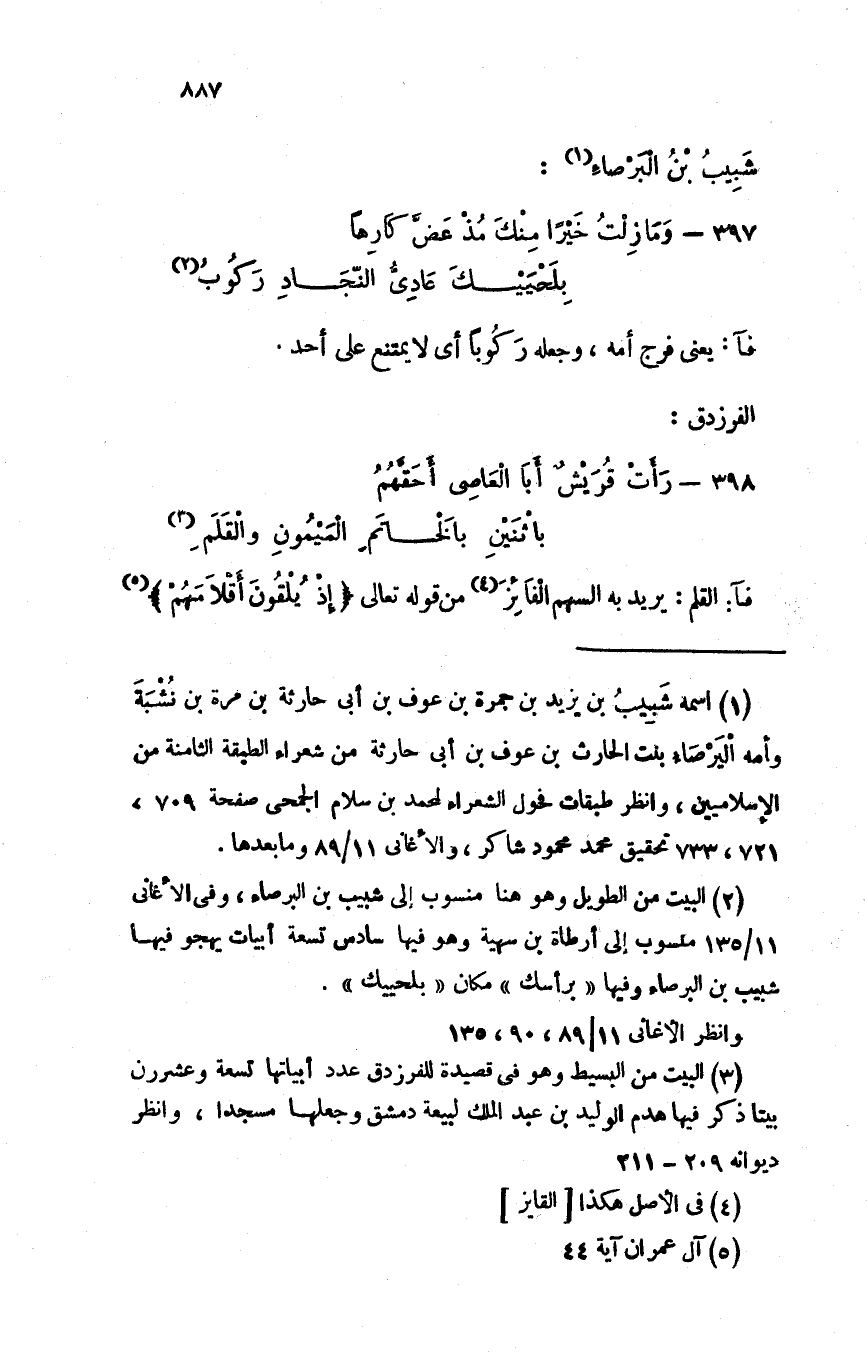 ٨٨٧
شَبِيبُ بْنُ الْبَرْصاء(١) :
٣٩٧ – وَمَازِلْتُ خَيْرًا مِنْكَ مُذْ عَضَّ كَارِهاً
بِلَحْيَيْـــكَ عَادِىُّ النِّجَـــادِ رَكُوبُ(٢)
فآ : يعنى فرج أمه ، وجعله رَكُوباً أى لا يمتنع على أحد .
الفرزدق :
٣٩٨ – رَأَتْ قُرَيْشٌ أَبَا الْعَاصِى أَحَقَّهُمُ
بِاثْنَيْنِ بالْخَـــاتَمِ الْمَيْمُونِ والْقَلَمِ(٣)
فآ : القلم : يريد به السهم الْفَائِزَ(٤) من قوله تعالى ﴿ إِذْ يُلْقُونَ أَقْلَامَهُمْ ﴾(٥)
(١) اسمه شَبِيبُ بن يزيد بن جمرة بن عوف بن أبى حارثة بن مرة بن نُشْبَةَ
وأمه الْبَرْصَاء بنت الحارث بن عوف بن أبى حارثة من شعراء الطبقة الثامنة من
الإسلاميين ، وانظر طبقات فحول الشعراء لمحمد بن سلام الجمحى صفحة ٧٠٩ ،
٧٢١ ، ٧٣٣ تحقيق محمد محمود شاكر ، والأغانى ٨٩/١١ ومابعدها .
(٢) البيت من الطويل وهو هنا منسوب إلى شبيب بن البرصاء ، وفى الأغانى
١٣٥/١١ منسوب إلى أرطاة بن سهية وهو فيها سادس تسعة أبيات يهجو فيهـا
شبيب بن البرصاء وفيها « برأسك » مكان « بلحييك » .
وانظر الأغانى ٨٩/١١ ، ٩٠ ، ١٣٥
(٣) البيت من البسيط وهو فى قصيدة للفرزدق عدد أبياتها تسعة وعشررن
بيتا ذكر فيها هدم الوليد بن عبد الملك لبيعة دمشق وجعلهـا مسجدا ، وانظر
ديوانه ٢٠٩ – ٢١١
(٤) فى الأصل هكذا [ القايز ]
(٥) آل عمران آية ٤٤